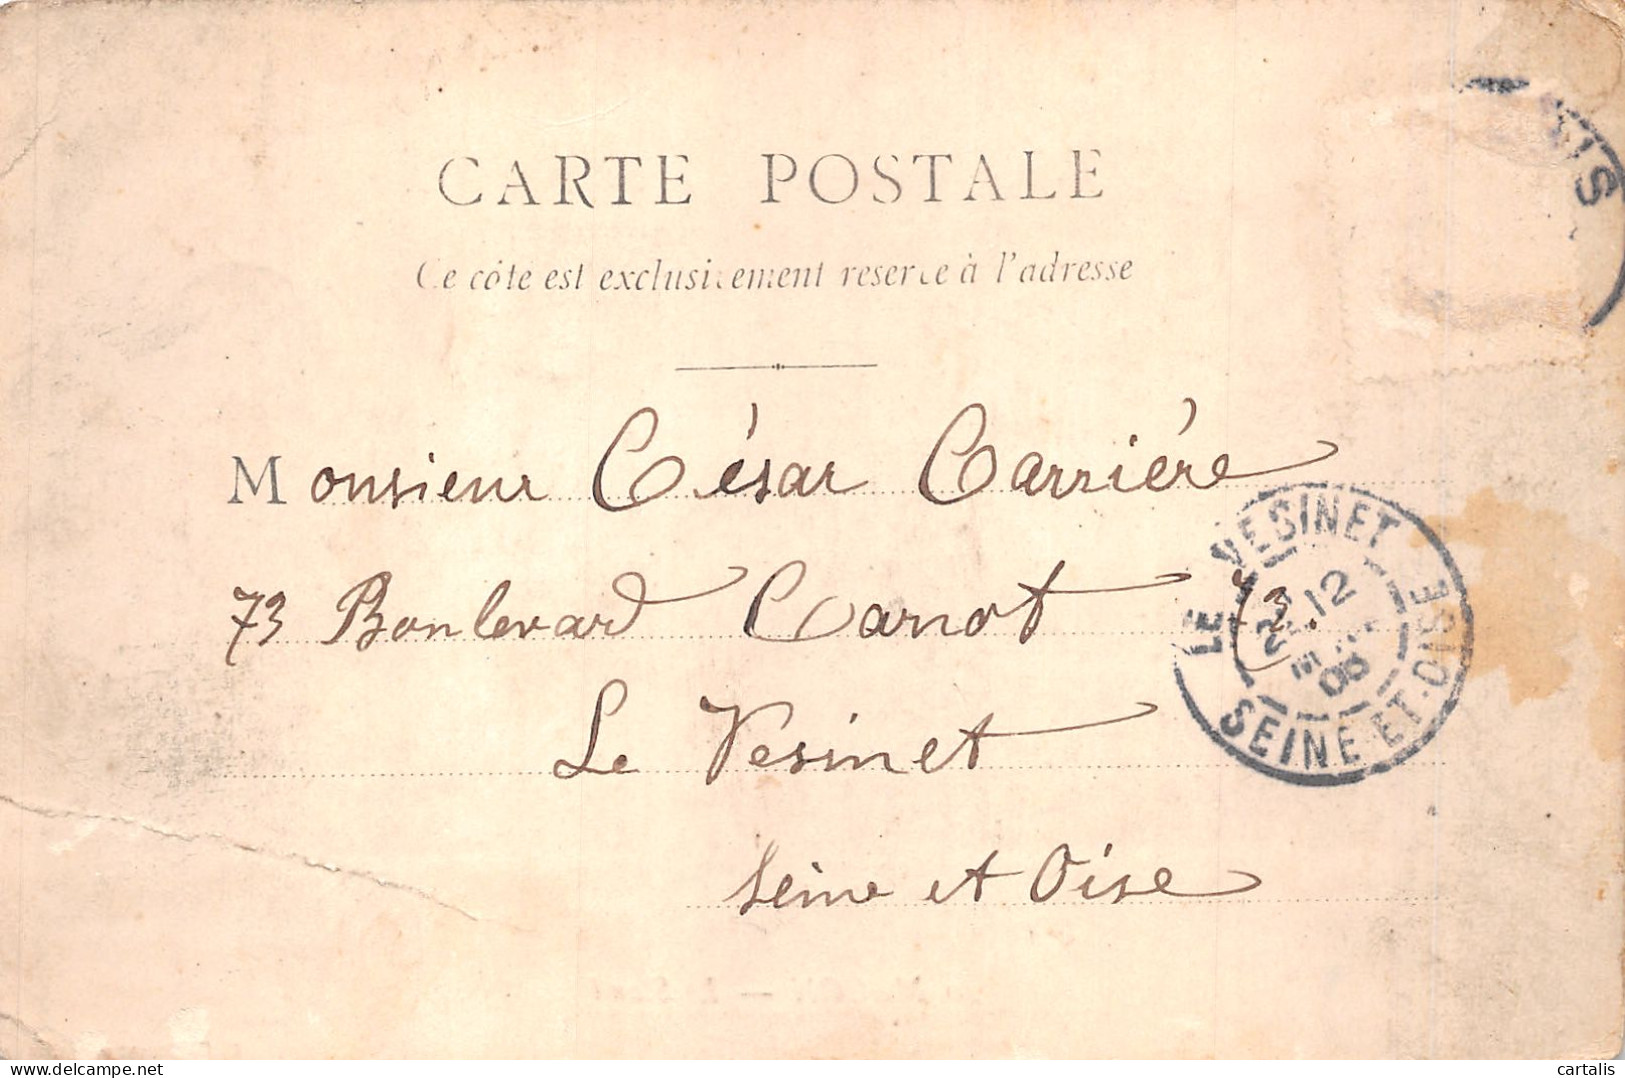 CARTE POSTALE
Ce côté est exclusivement réservé à l'adresse
Monsieur César Carrière
73 Boulevard Carnot 73
Le Vesinet
Seine et Oise
LE VESINET
12
03
SEINE-ET-OISE
delcampe.net
cartalis